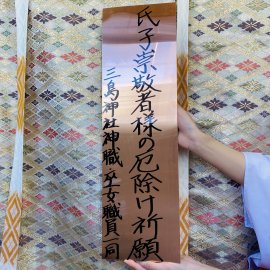 氏子崇敬者様の厄除け祈願
三島神社神職巫女職員一同